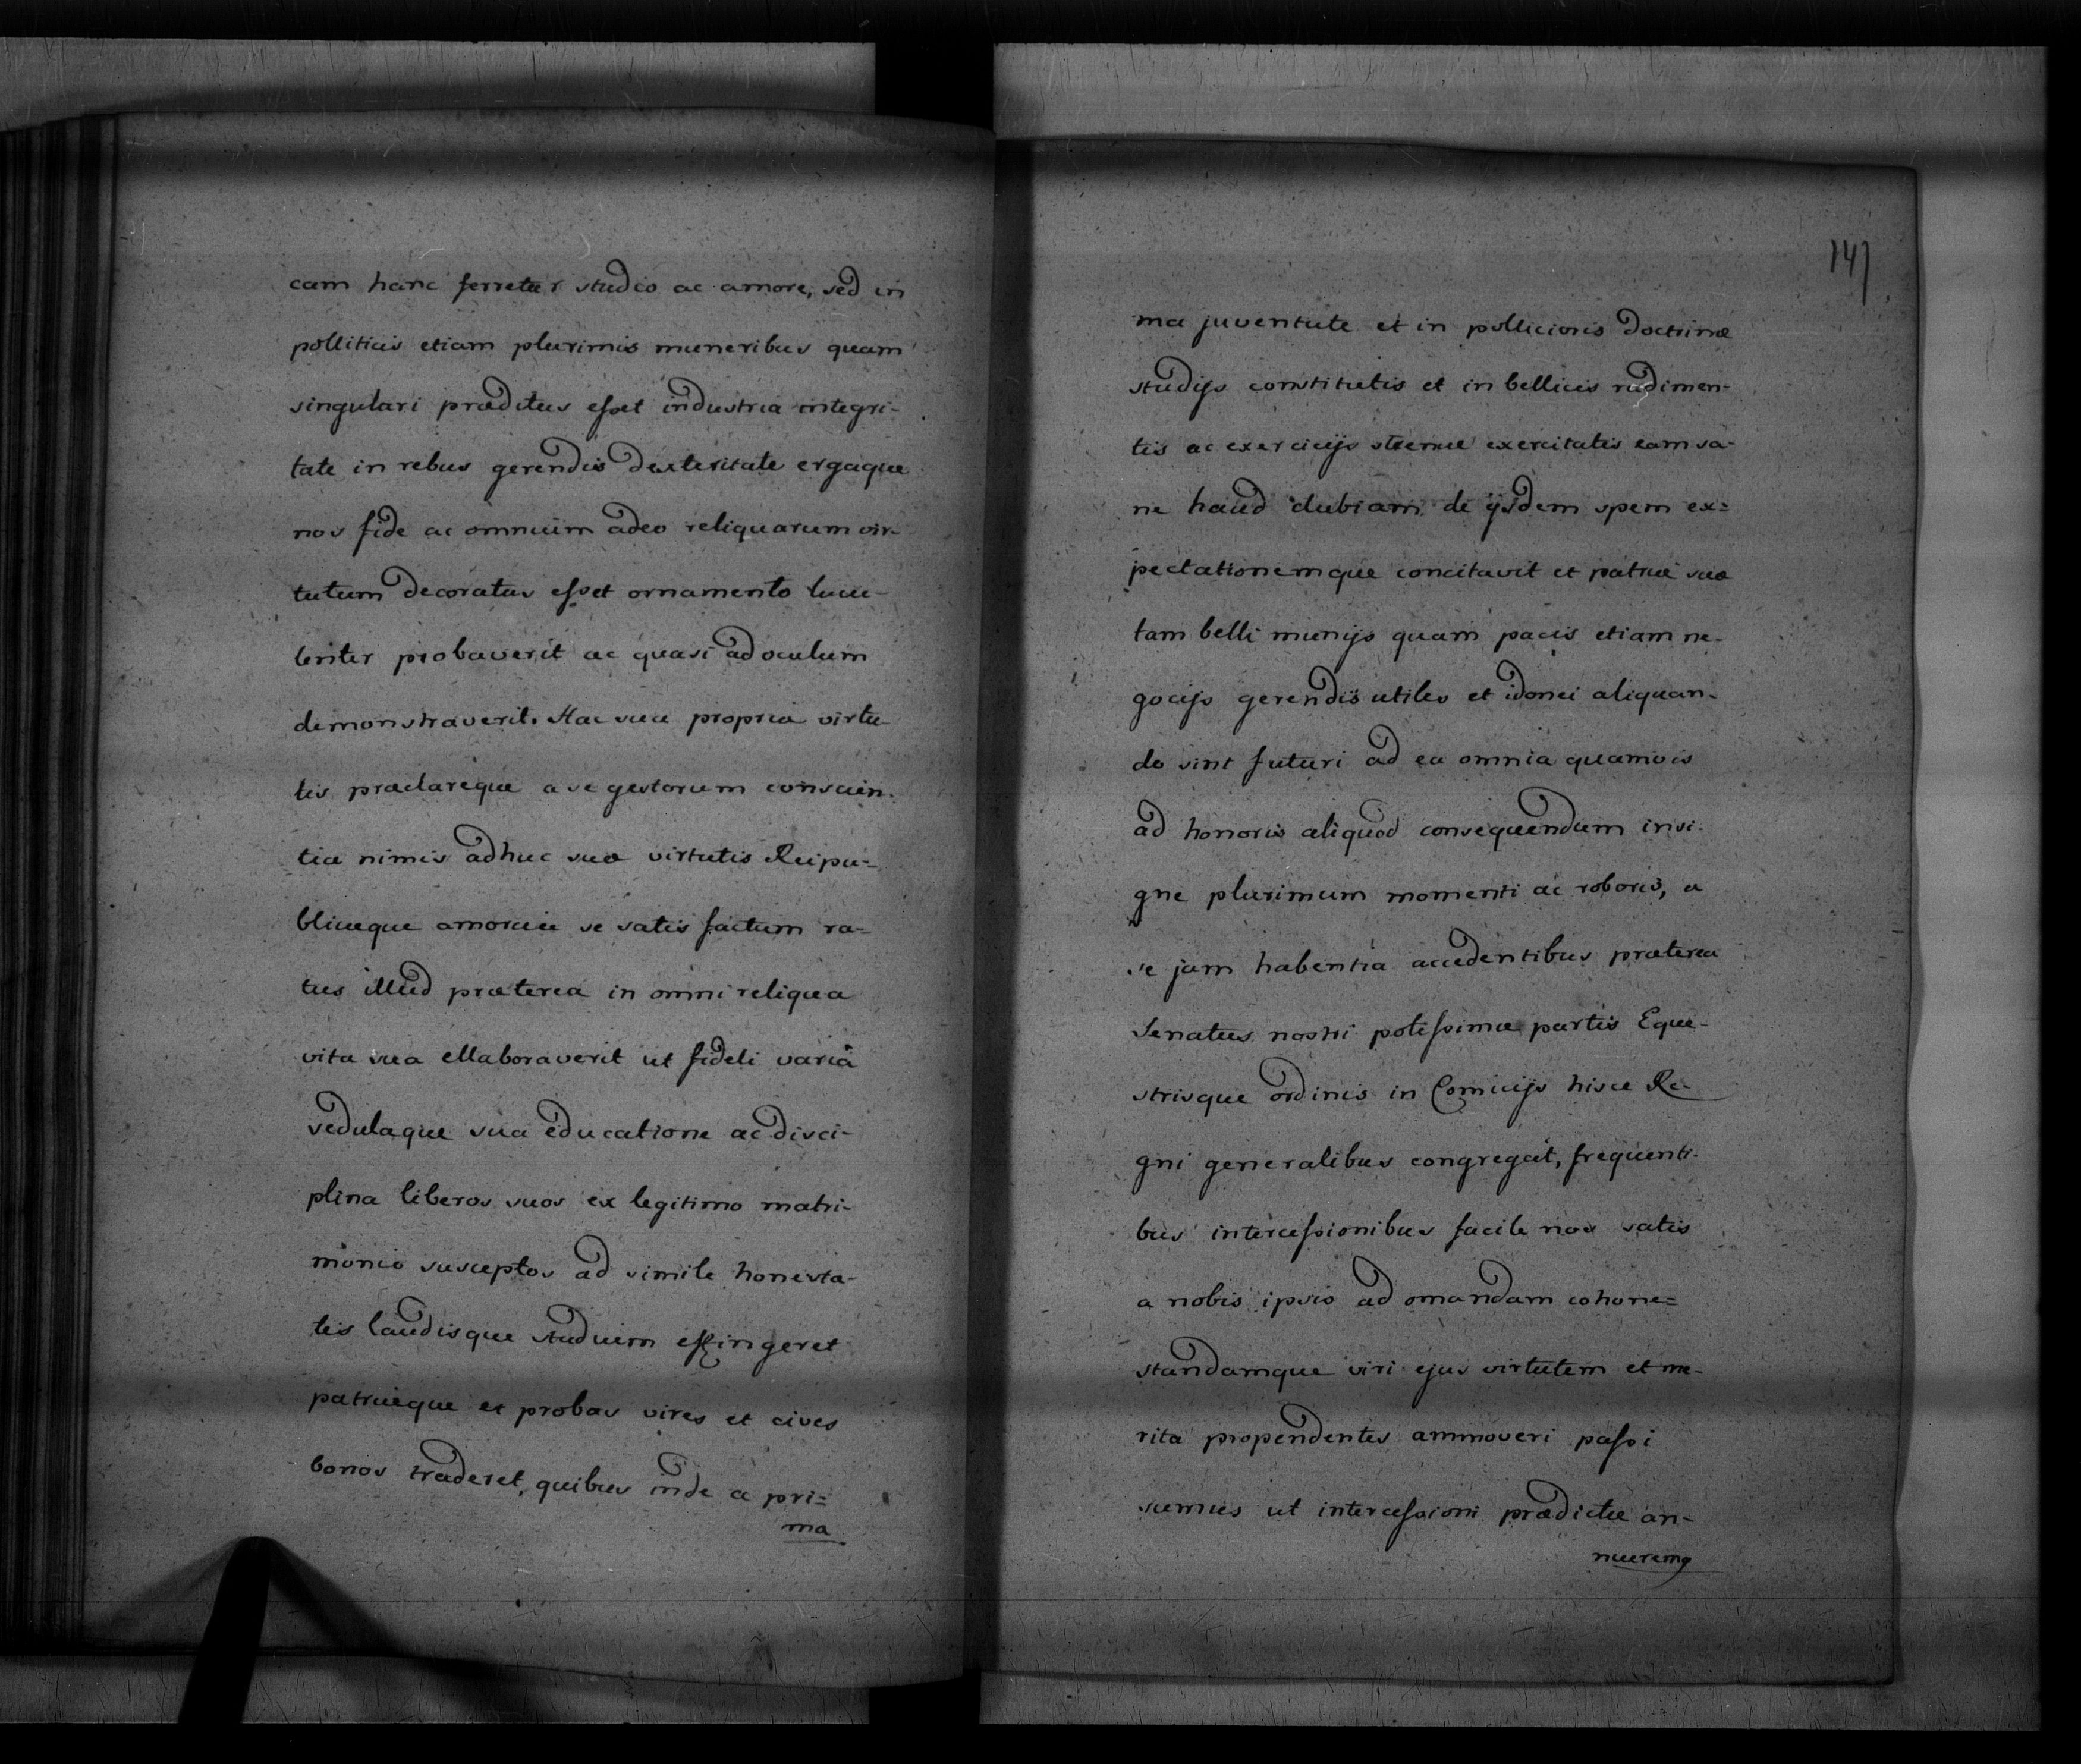 cam hanc ferretur studio ac amore, sed in
polliticis etiam plurimis muneribus quam
singulari præditus esset industria integri-
tate in rebus gerendis dexteritate ergaque
nos fide ac omnium adeo reliquarum vir-
tutum decoratus esset ornamento lucu-
lenter probaverit ac quasi ad oculum
demonstraverit. Hac sua propria virtu
tis præclareque a se gestorum conscien-
tia nimis adhuc suæ virtutis Reipu-
blicæque amorciu se satis factum ra-
tus illud præterea in omni reliqua
vita sua ellaboraverit ut fideli variâ
sedulaque sua educatione ac disci-
plina liberos suos ex legitimo matri-
monio susceptos ad simile honesta-
tis laudisque studium effingeret
patriæque et probas vires et cives
bonos traderet, quibus inde a pri=
ma
147
ma juventute et in pollicioris doctrinæ
studijs constitutis et in bellicis rudimen-
tis ac exercicijs strenue exercitatis eam sa-
ne haud dubiam de ijsdem spem ex=
pectationemque concitavit et patriæ suæ
tam belli munijs quam pacis etiam ne-
gocijs gerendis utiles et idonei aliquan-
do sint futuri ad ea omnia quamvis
ad honoris aliquod consequendum insi-
gne plurimum momenti ac roboris, a
se jam habentia accedentibus præterea
Senatus nostri potissimæ partis Eque-
strisque ordinis in Comicijs hisce Re-
gni generalibus congregat, frequenti-
bus intercessionibus facile nos satis
a nobis ipsis ad ornandam cohone=
standamque viri ejus virtutem et me-
rita propendentes ammoveri passi
sumus ut intercessioni prædictæ an-
nueremq